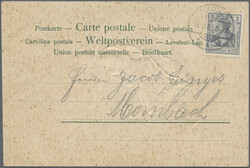 Postkarte – Carte postale – Unione postale
Carolina postala – Weltpostverein – Levelezö-Lap
Union postale universelle – Briefkaart.
Herrn Jacob
Mombach